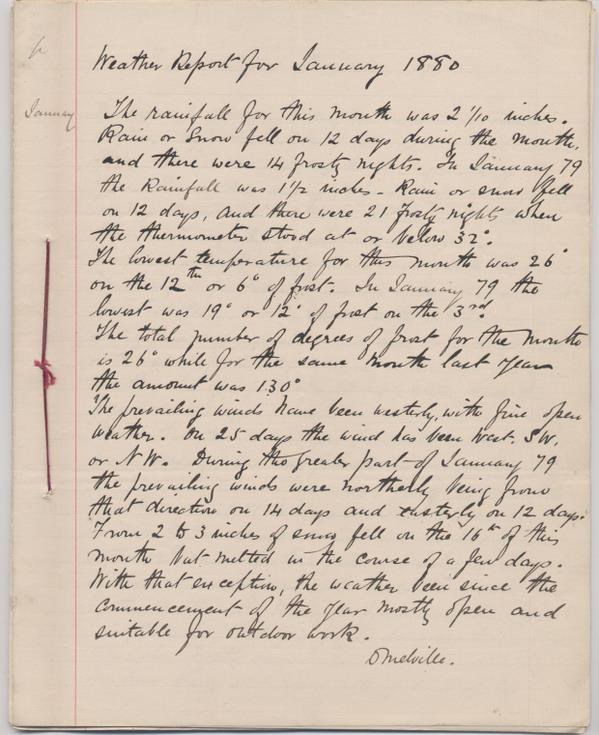 Weather Report for January 1880
January
The rainfall for this month was 2 1/10 inches.
Rain or Snow fell on 12 days during the month,
and there were 14 frosty nights. In January 79
the Rainfall was 1 1/2 inches - Rain or snow fell
on 12 days, and there were 21 frosty nights when
the thermometer stood at or below 32°.
The lowest temperature for this month was 26°
on the 12th or 6° of frost. In January 79 the
lowest was 19° or 12° of frost on the 3rd.
The total number of degrees of frost for the month
is 26° while for the same month last year
the amount was 130°
The prevailing winds have been westerly, with fine open
weather. On 25 days the wind has been West. S.W.
or N W. During the greater part of January 79
the prevailing winds were northerly being from
that direction on 14 days and easterly on 12 days.
From 2 to 3 inches of snow fell on the 16th of this
month but melted in the course of a few days.
With that exception, the weather been since the
commencement of the year mostly open and
suitable for outdoor work.
D Melville.